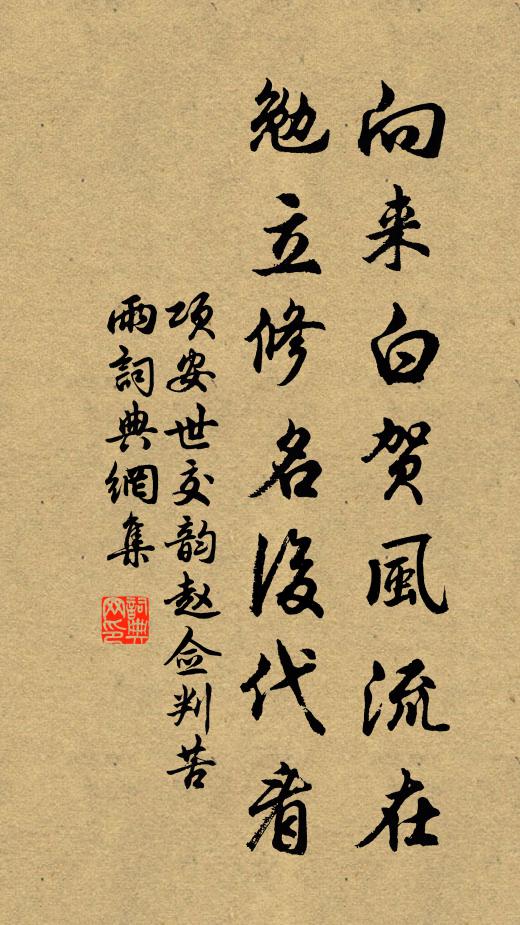 向来白贺風流在
勉立修名後代看
项安世次韵赵佥判苦
雨詞典網集
詞典
网印